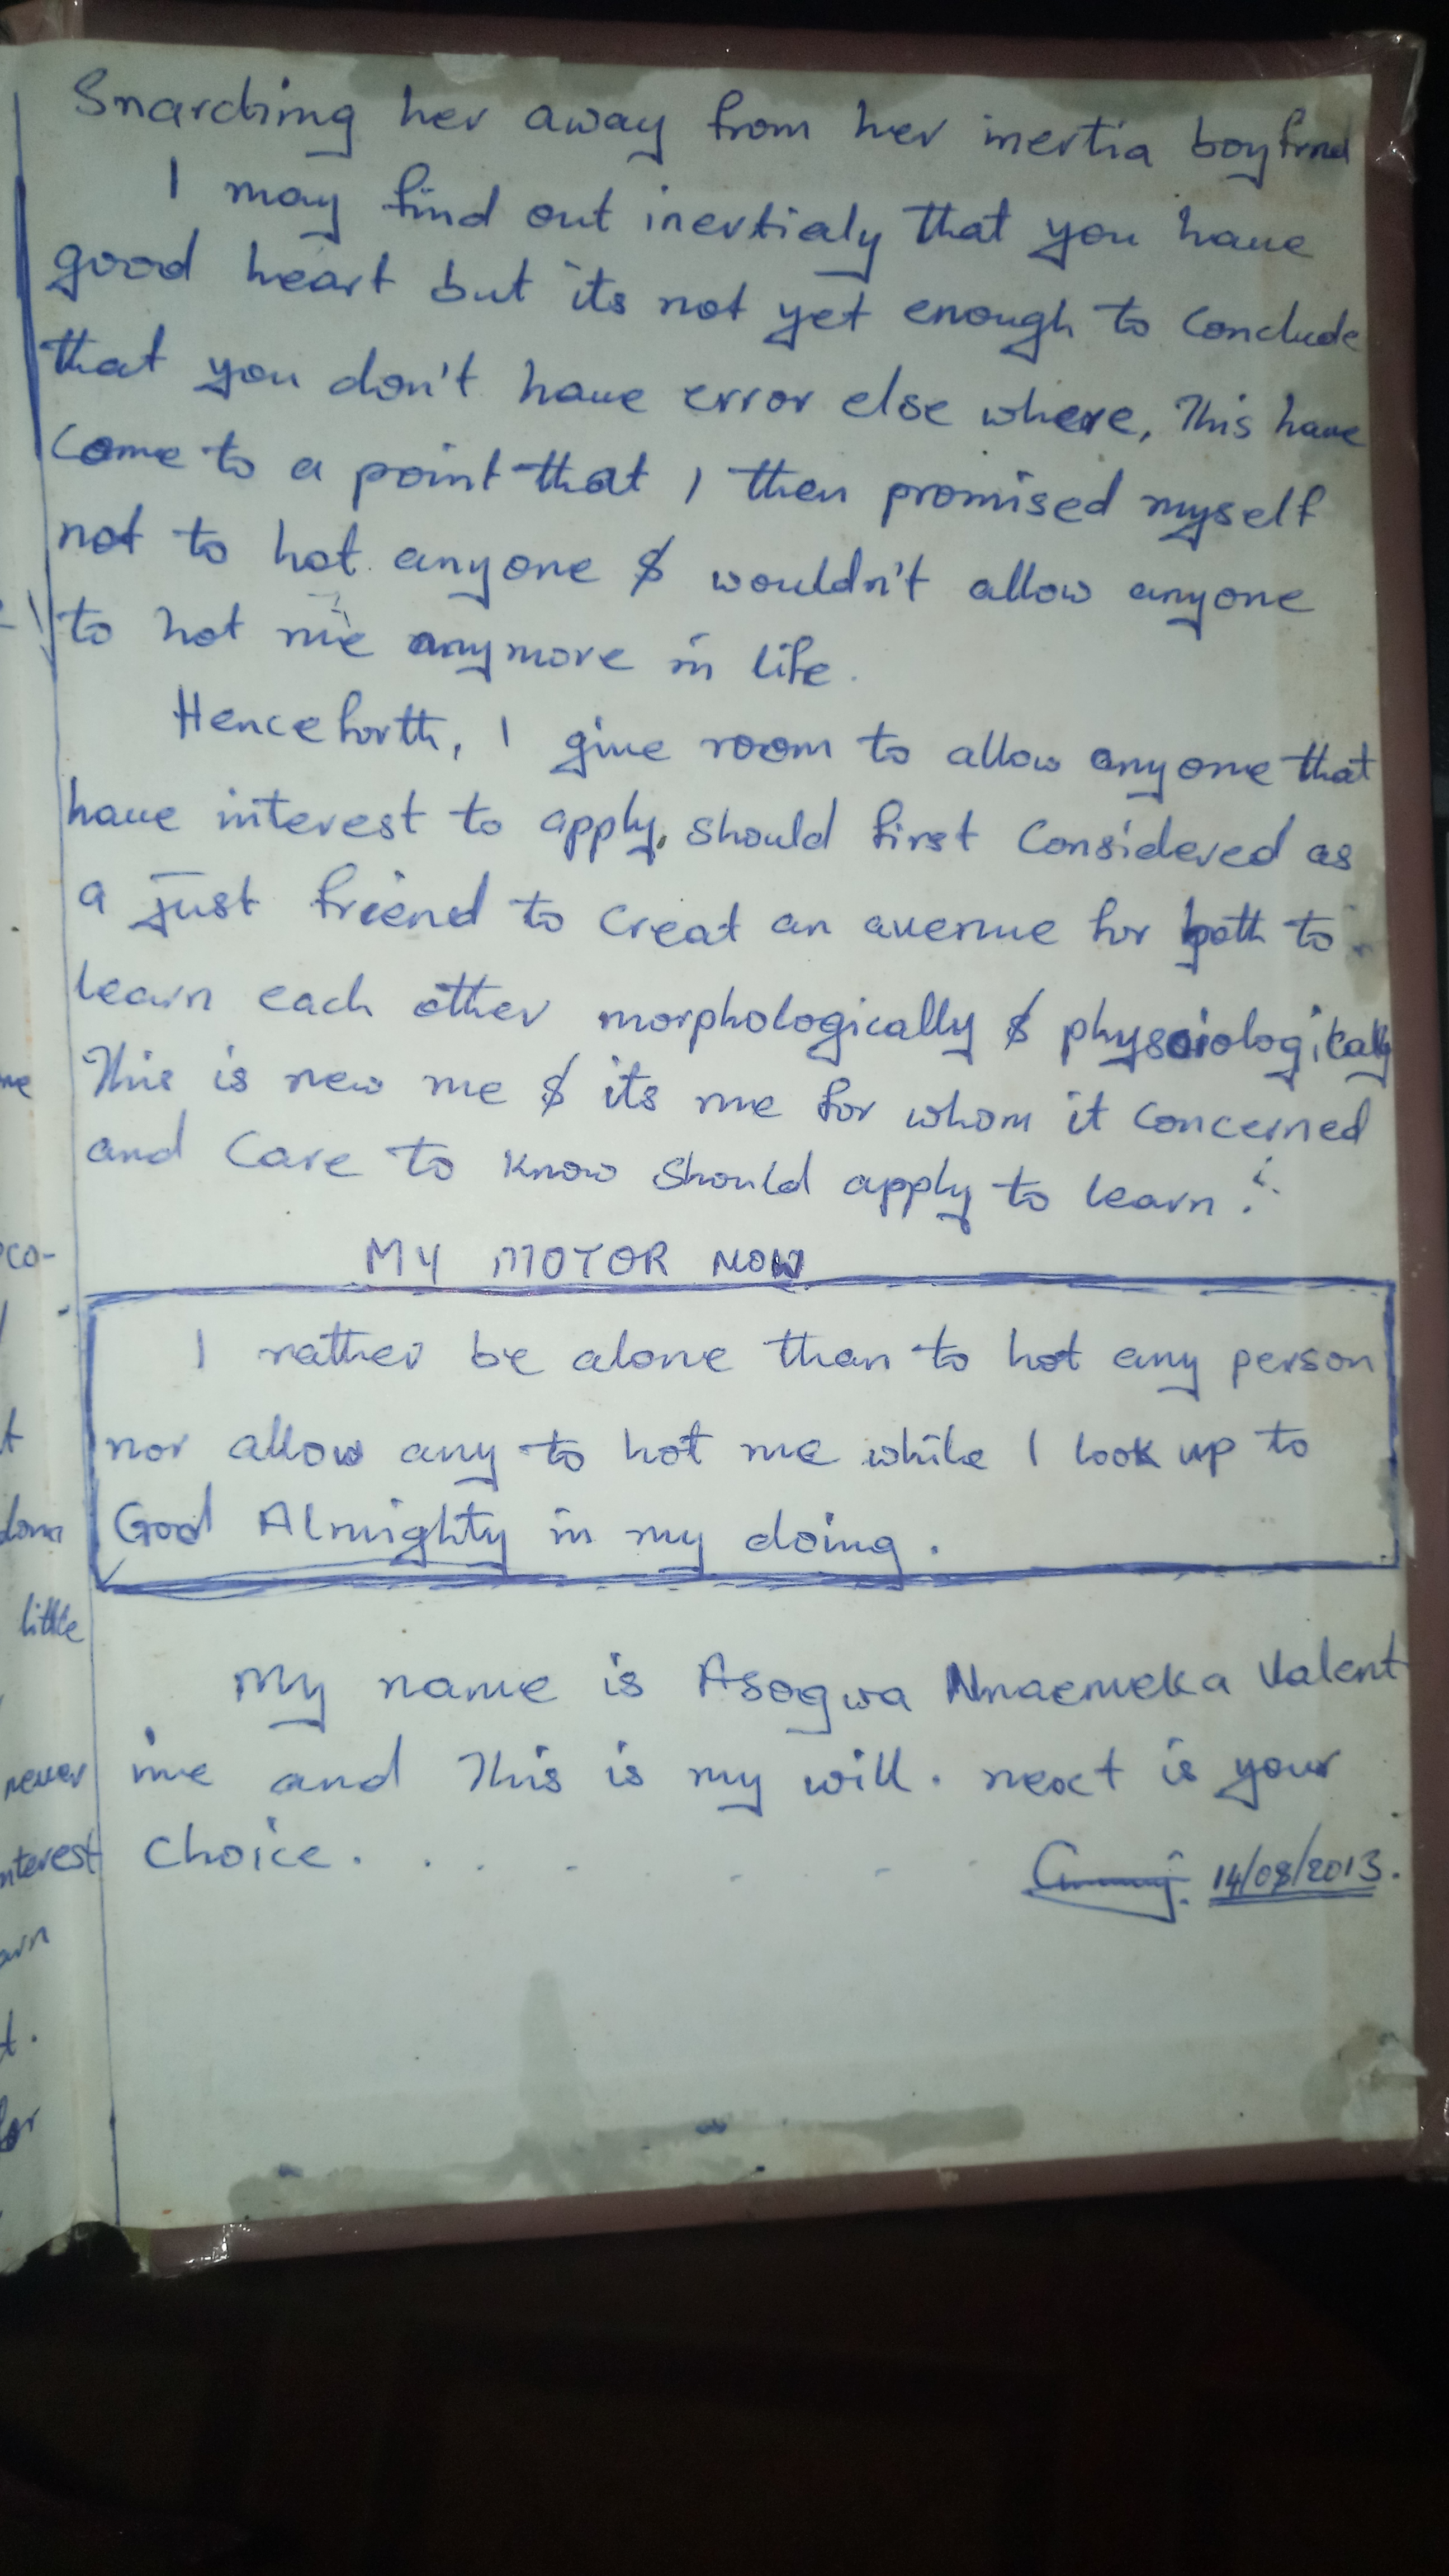 Snarching her away from her inertia boyfrnd
I may find out inertialy that you have
good heart but its not yet enough to conclude
that you don't have error else where, This have
come to a point that I then promised myself
not to hot anyone & wouldn't allow anyone
to hot me anymore in life.
Henceforth, I give room to allow anyone that
have interest to apply, should first considered as
a just friend to creat an avenue for both to
learn each other morphologically & physoiologically
This is new me & its me for whom it concerned
and care to know should apply to learn.
MY MOTOR NOW
I rather be alone than to hot any person
nor allow any to hot me while I look up to
God Almighty in my doing.
My name is Asogwa Nnaemeka Valent
ine and This is my will. next is your
choice. . . . . . . .
14/08/2013.
little
never